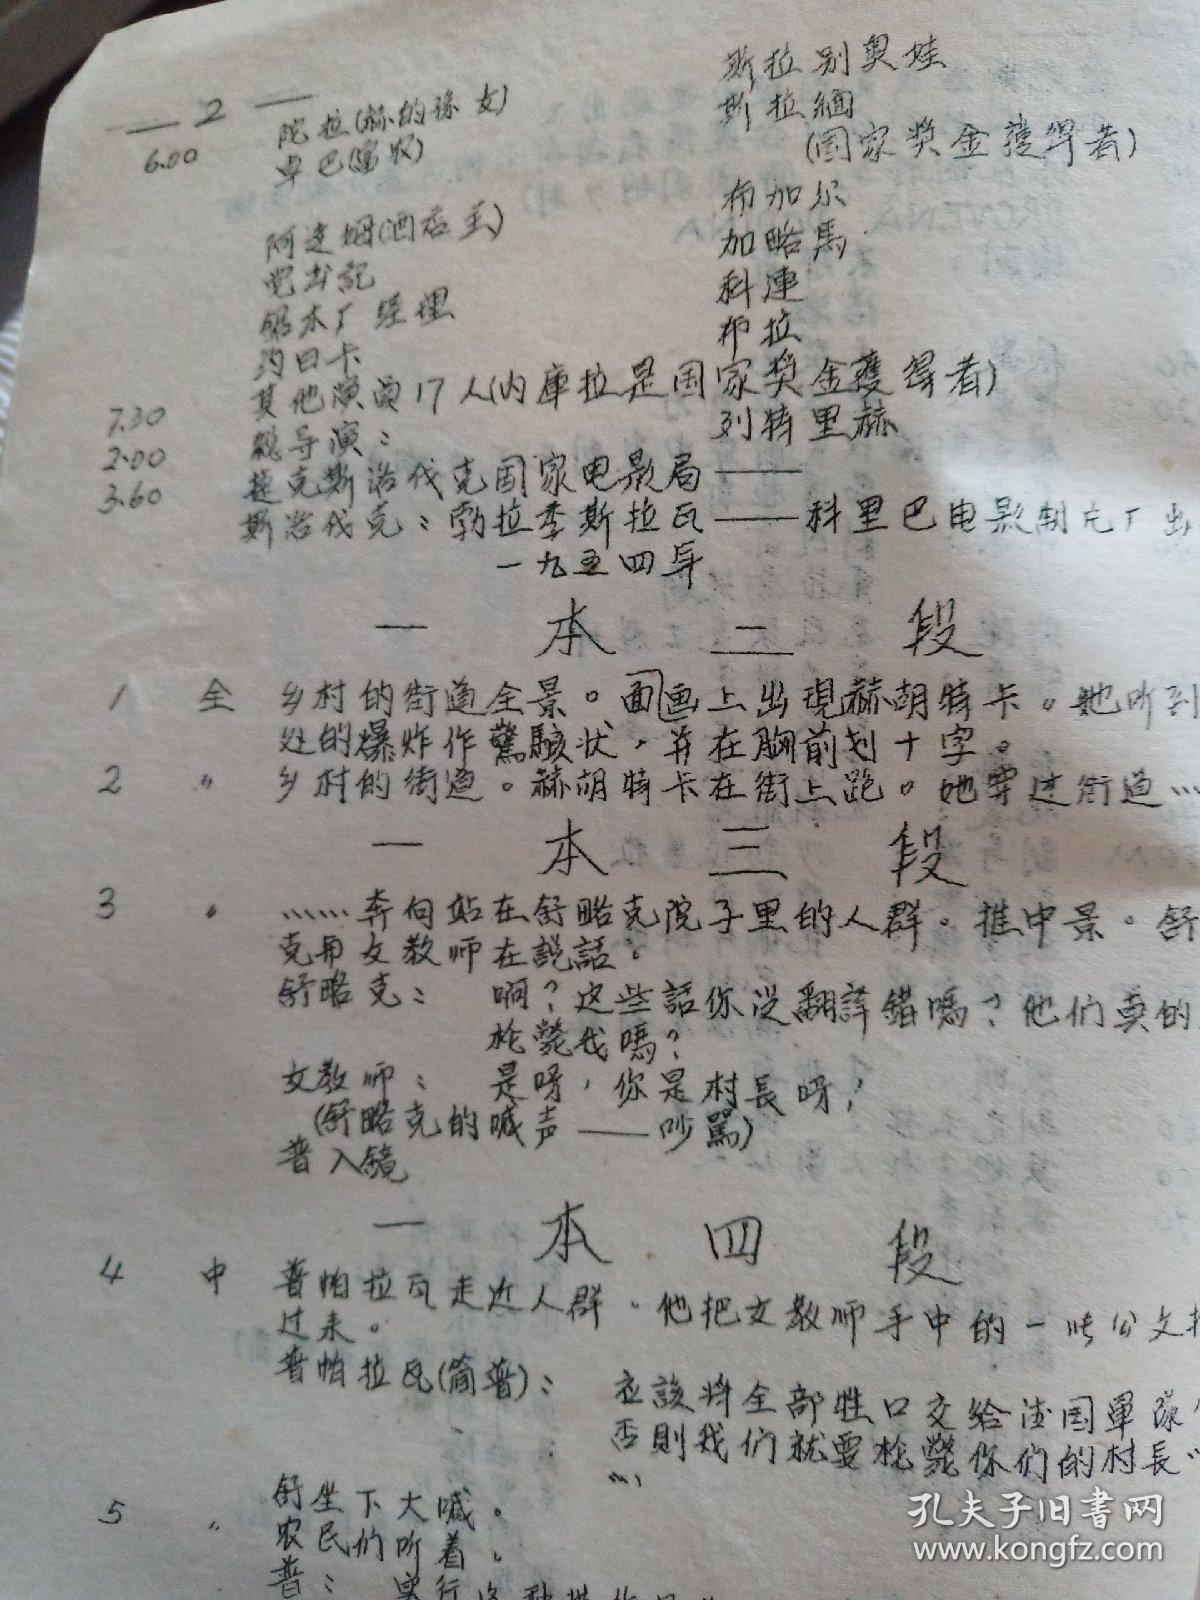 — 2 —
斯拉别奥娃
陀拉(赫的孙女)
斯拉緬
6.00 卓巴(富农)
(国家奖金獲得者)
阿达姆(酒店主)
布加尔
党书記
加略馬
锯木厂经理
科連
约日卡
布拉
其他演员17人(内庫拉是国家奖金獲得者)
7.30 总导演:
列特里赫
2.00 捷克斯洛伐克国家电影局——
3.60 斯洛伐克:勃拉季斯拉瓦——科里巴电影制片厂出
一九五四年
一 本 二 段
1 全 乡村的街道全景。面画上出現赫胡特卡。她听到
处的爆炸作驚駭状,并在胸前划十字。
2 〃 乡村的街道。赫胡特卡在街上跑。她穿过街道……
一 本 三 段
3 〃 ……奔向站在舒略克院子里的人群。推中景。舒
克与女教师在説話。
舒略克: 啊?这些話你没翻譯錯嗎?他们真的
枪斃我嗎?
女教师: 是呀,你是村長呀!
(舒略克的喊声——吵駡)
普入镜
一 本 四 段
4 中 普帕拉瓦走近人群。他把女教师手中的一些公文
过来。
普帕拉瓦(简普): 应該将全部牲口交给德国軍隊
否則我们就要枪斃你们的村長
舒坐下大喊。
5 〃 农民们听着。
普:
孔夫子旧书网
www.kongfz.com